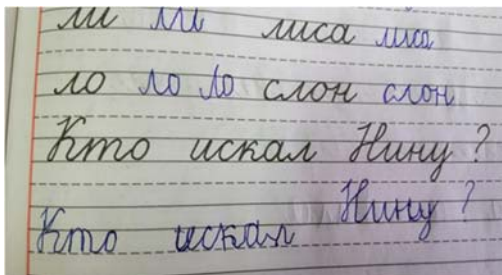 ли ли лиса лиса
ло ло ло слон слон
Кто искал Нину?
Кто искал Нину?